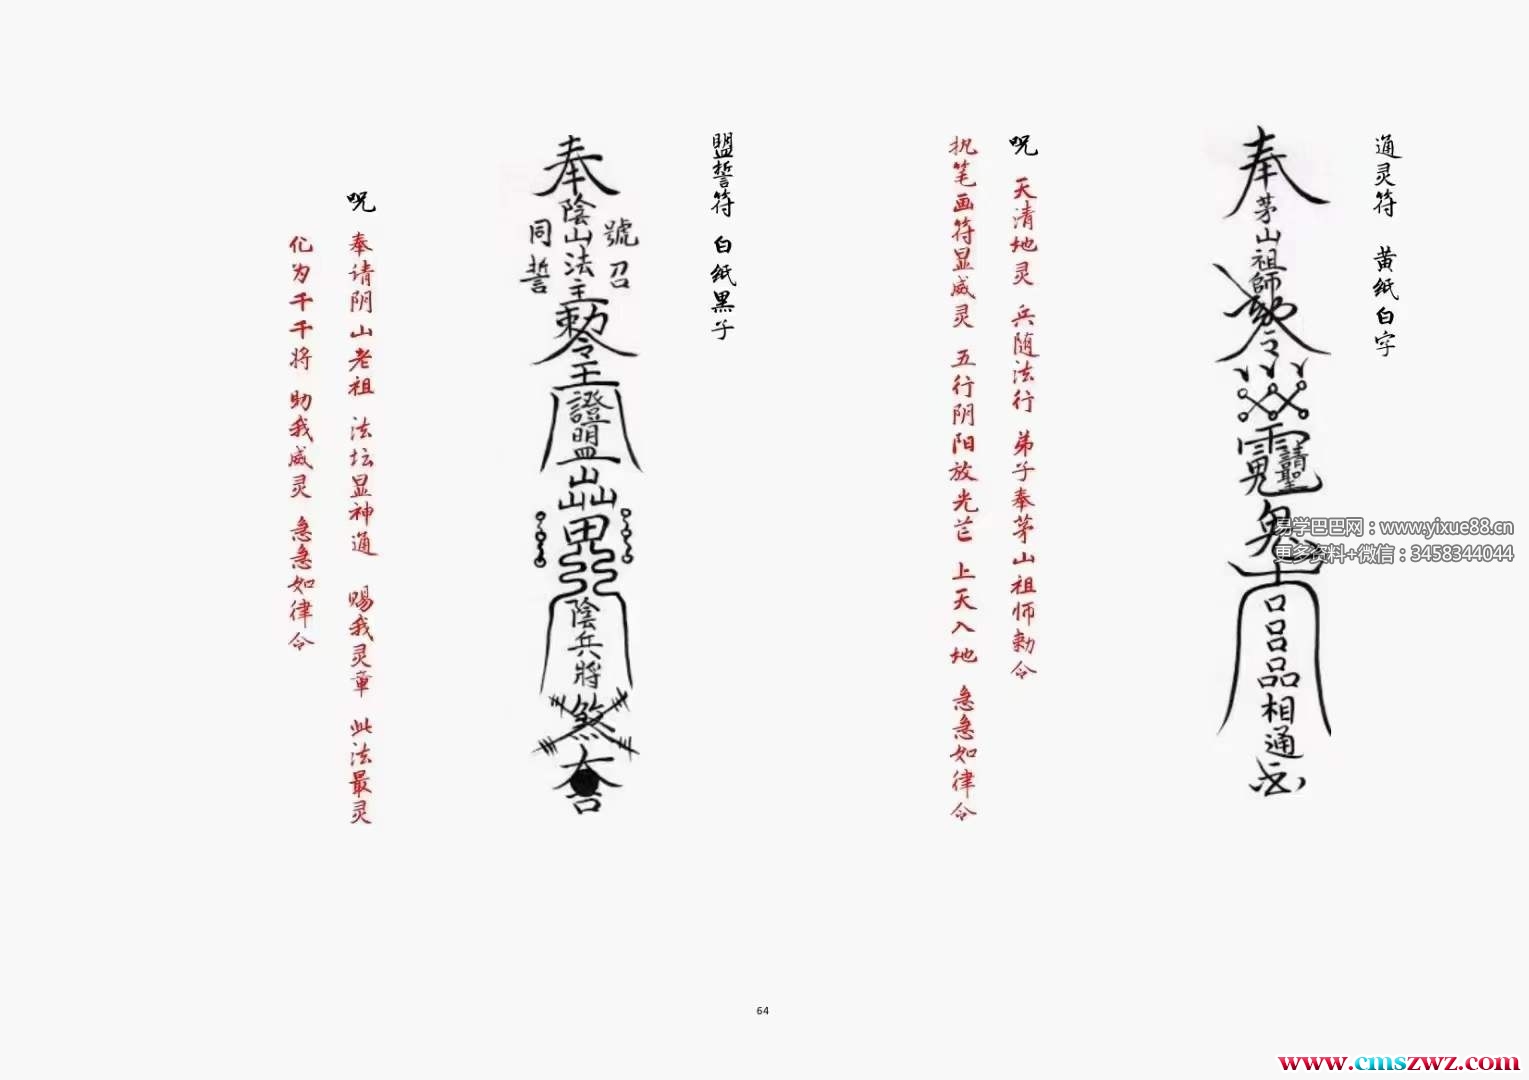 通灵符 黄纸白字
奉
茅山祖師
勅令
鬼
口
吕
品
相通
呪 天清地灵 兵随法行 弟子奉茅山祖师勅令
执笔画符显威灵 五行阴阳放光芒 上天入地 急急如律令
盟誓符 白纸黑子
奉
陰山法主
號召
同誓
勅令
王
證盟
陰兵將
煞
呪 奉请阴山老祖 法坛显神通 赐我灵章 此法最灵
化为千千将 助我威灵 急急如律令
易学巴巴网：www.yixue88.cn
更多资料+微信：3458344044
64
www.cmszwz.com